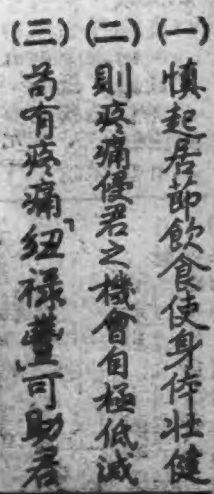 (一)慎起居節飲食使身体壮健
(二)則疼痛侵君之機會自極低減
(三)苟有疼痛「紐祿豊」可助君